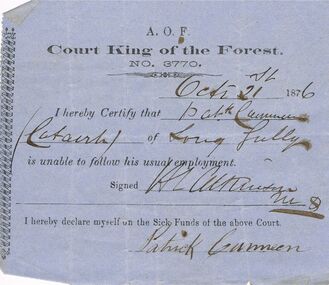 A. O. F.
Court King of the Forest.
NO. 3770.
Octr 21st 1876
I hereby Certify that Patk
(Catarrh) of Long Gully
is unable to follow his usual employment.
Signed H L Atkinson
I hereby declare myself on the Sick Funds of the above Court.
Patrick